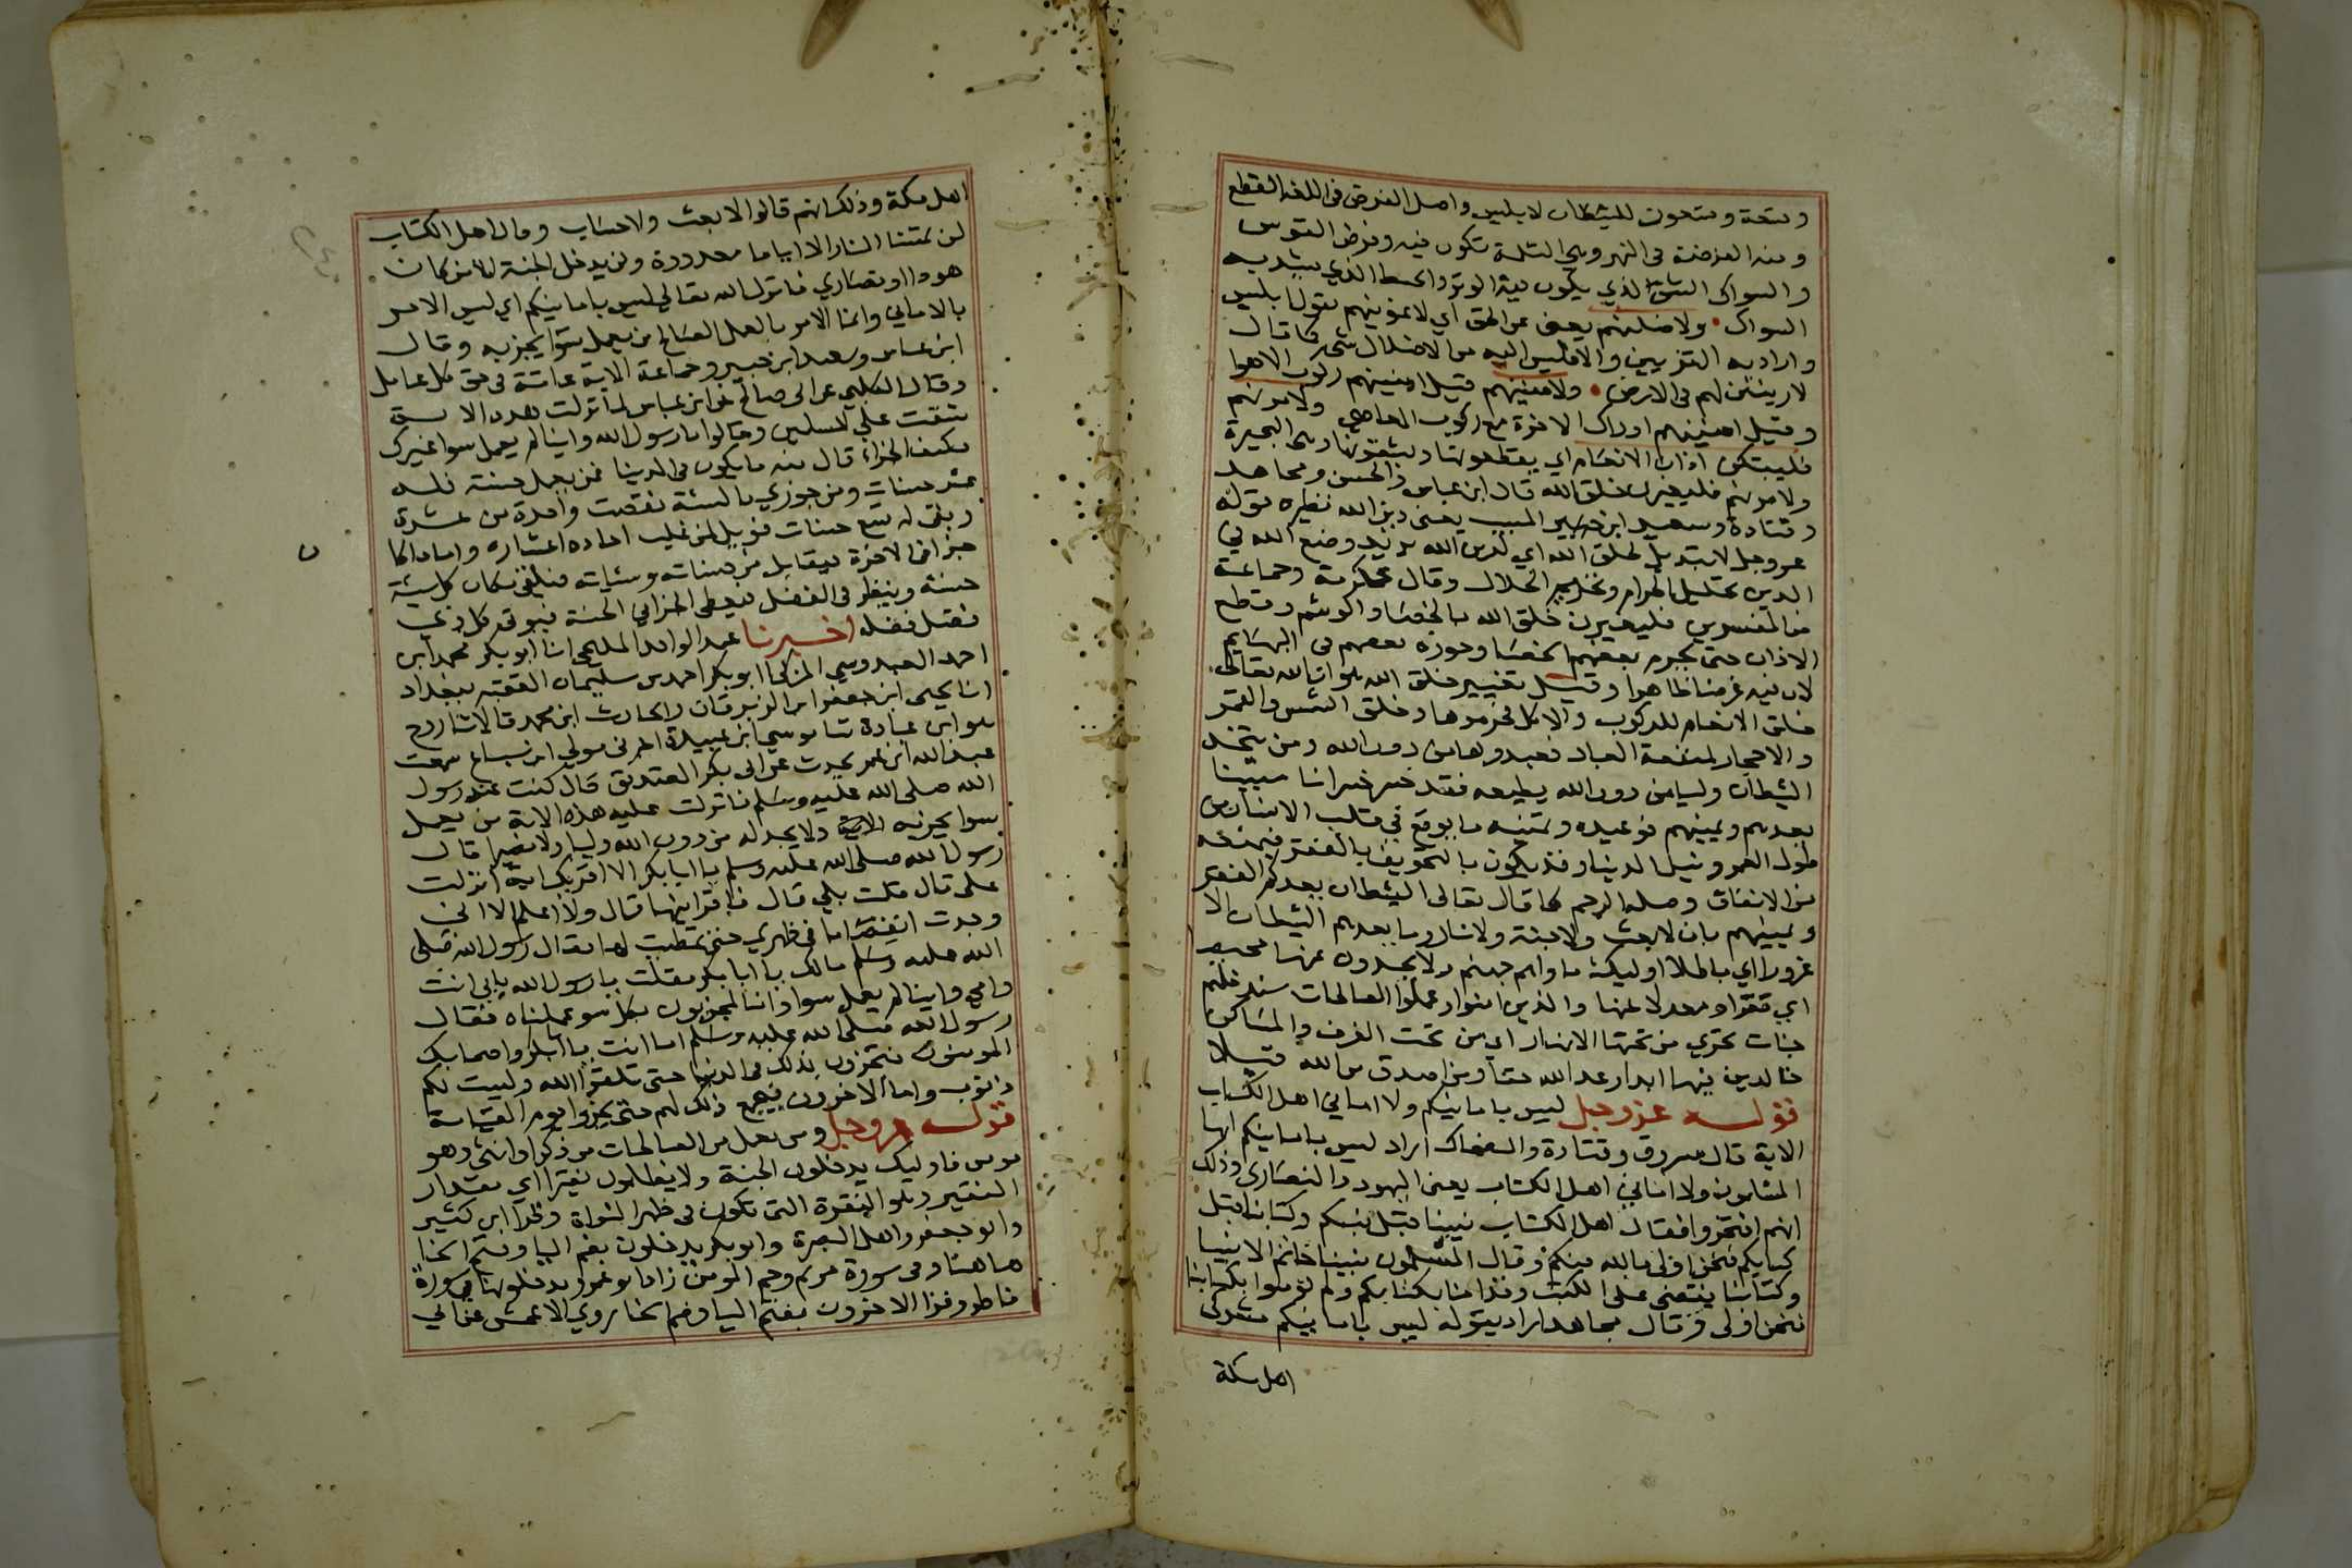 وتسعة وتسعون للشيطان لابليس واصل الفرض في اللغة القطع
ومنه الفرضة في النهر وهي الثلمة تكون فيه وفرض القوس
والسواك الشق الذي يكون فيه الوتر والخيط الذي يشد به
السواك ولاضلنهم يعني عن الحق اي لاغوينهم يقول ابليس
واراد به التزيين والا فليس اليه من الاضلال شي كما قال
لازينن لهم في الارض ولامنينهم قيل امنينهم ركوب الاهوا
وقيل امنينهم ادراك الاخرة مع ركوب المعاصي ولامرنهم
فليبتكن اذان الانعام اي يقطعونها ويشقونها وهي البحيرة
ولامرنهم فليغيرن خلق الله قال ابن عباس والحسن ومجاهد
وقتادة وسعيد ابن المسيب يعني دين الله نظيره قوله
عز وجل لا تبديل لخلق الله اي لدين الله يريد وضع الله في
الدين بتحليل الحرام وتحريم الحلال وقال عكرمة وجماعة
من المفسرين فليغيرن خلق الله بالخصا والوشم وقطع
الاذان حتى حرم بعضهم الخصا وجوزه بعضهم في البهايم
لان فيه غرضا ظاهرا وقيل تغيير خلق الله هو ان الله تعالى
خلق الانعام للركوب والاكل فحرموها وخلق الشمس والقمر
والاحجار لمنفعة العباد فعبدوها من دون الله ومن يتخذ
الشيطان وليا من دون الله يطيعه فقد خسر خسرانا مبينا
يعدهم ويمنيهم فوعيده وتمنيه ما يوقع في قلب الانسان من
طول العمر ونيل الدنيا وقد يكون بالتخويف بالفقر فيمنعه
من الانفاق وصلة الرحم كما قال تعالى الشيطان يعدكم الفقر
ويمنيهم بان لا بعث ولا جنة ولا نار وما يعدهم الشيطان الا
غرورا اي باطلا اوليك ماواهم جهنم ولا يجدون عنها محيصا
اي مفرا ومعدلا عنها والذين امنوا وعملوا الصالحات سندخلهم
جنات تجري من تحتها الانهار اي من تحت الغرف والمساكن
خالدين فيها ابدا وعد الله حقا ومن اصدق من الله قيلا
قوله عز وجل ليس بامانيكم ولا اماني اهل الكتاب
الاية قال مسروق وقتادة والضحاك اراد ليس بامانيكم ايها
المسلمون ولا اماني اهل الكتاب يعني اليهود والنصارى وذلك
انهم افتخروا فقال اهل الكتاب نبينا قبل نبيكم وكتابنا قبل
كتابكم فنحن اولى بالله منكم وقال المسلمون نبينا خاتم الانبيا
وكتابنا يقضي على الكتب وقد امنا بكتابكم ولم تؤمنوا بكتابنا
فنحن اولى وقال مجاهد اراد بقوله ليس بامانيكم مشركي
اهل مكة
اهل مكة وذلك انهم قالوا لا بعث ولا حساب وقال اهل الكتاب
لن تمسنا النار الا اياما معدودة ولن يدخل الجنة الا من كان
هودا او نصارى فانزل الله تعالى ليس بامانيكم اي ليس الامر
بالاماني وانما الامر بالعمل الصالح من يعمل سوا يجز به وقال
ابن عباس وسعيد ابن جبير وجماعة الاية عامة في حق كل عامل
وقال الكلبي عن ابي صالح عن ابن عباس لما نزلت هذه الاية
شقت على المسلمين وقالوا يا رسول الله واينا لم يعمل سوا غيرك
فكيف الجزاء قال منه ما يكون في الدنيا فمن يعمل حسنة فله
عشر حسنات ومن جوزي بالسيئة نقصت واحدة من عشرة
وبقي له تسع حسنات فويل لمن غلبت احاده اعشاره واما ما كان
جزا في الاخرة فيقابل بين حسناته وسئياته فيلقى مكان كل سيئة
حسنة وينظر في الفضل فيعطى الجزا في الجنة فيوتى كل ذي
فضل فضله اخبرنا عبد الواحد المليحي انا ابو بكر محمد ابن
احمد العبدوسي المزكي ابو بكر احمد بن سليمان الفقيه ببغداد
انا يحيى ابن جعفر ابن الزبرقان والحارث ابن محمد قالا ثنا روح
هو ابن عبادة ثنا موسى ابن عبيدة اخبرني مولى ابن سباع سمعت
عبد الله ابن عمر يحدث عن ابي بكر الصديق قال كنت عند رسول
الله صلى الله عليه وسلم فانزلت عليه هذه الاية من يعمل
سوا يجز به الاية ولا يجد له من دون الله وليا ولا نصيرا قال
رسول الله صلى الله عليه وسلم يا ابا بكر الا اقريك اية انزلت
علي قال قلت بلى قال فاقرانيها قال ولا اعلم الا اني
وجدت انفصاما في ظهري حتى تمطيت لها فقال رسول الله صلى
الله عليه وسلم مالك يا ابا بكر فقلت يا رسول الله بابي انت
وامي واينا لم يعمل سوا وانا لمجزيون بكل سو عملناه فقال
رسول الله صلى الله عليه وسلم اما انت يا ابا بكر واصحابك
المومنون فتجزون بذلك في الدنيا حتى تلقوا الله وليست لكم
ذنوب واما الاخرون فيجمع ذلك لهم حتى يجزوا يوم القيامة
قوله عز وجل ومن يعمل من الصالحات من ذكر او انثى وهو
مومن فاوليك يدخلون الجنة ولا يظلمون نقيرا اي مقدار
النقير وهو النقرة التي تكون في ظهر النواة وقرا ابن كثير
وابو جعفر واهل البصرة وابو بكر يدخلون بضم اليا وفتح الخا
هاهنا وفي سورة مريم وحم المومن زاد ابو عمرو يدخلونها في سورة
فاطر وقرا الاخرون بفتح اليا وضم الخا روى الاعمش عن ابي